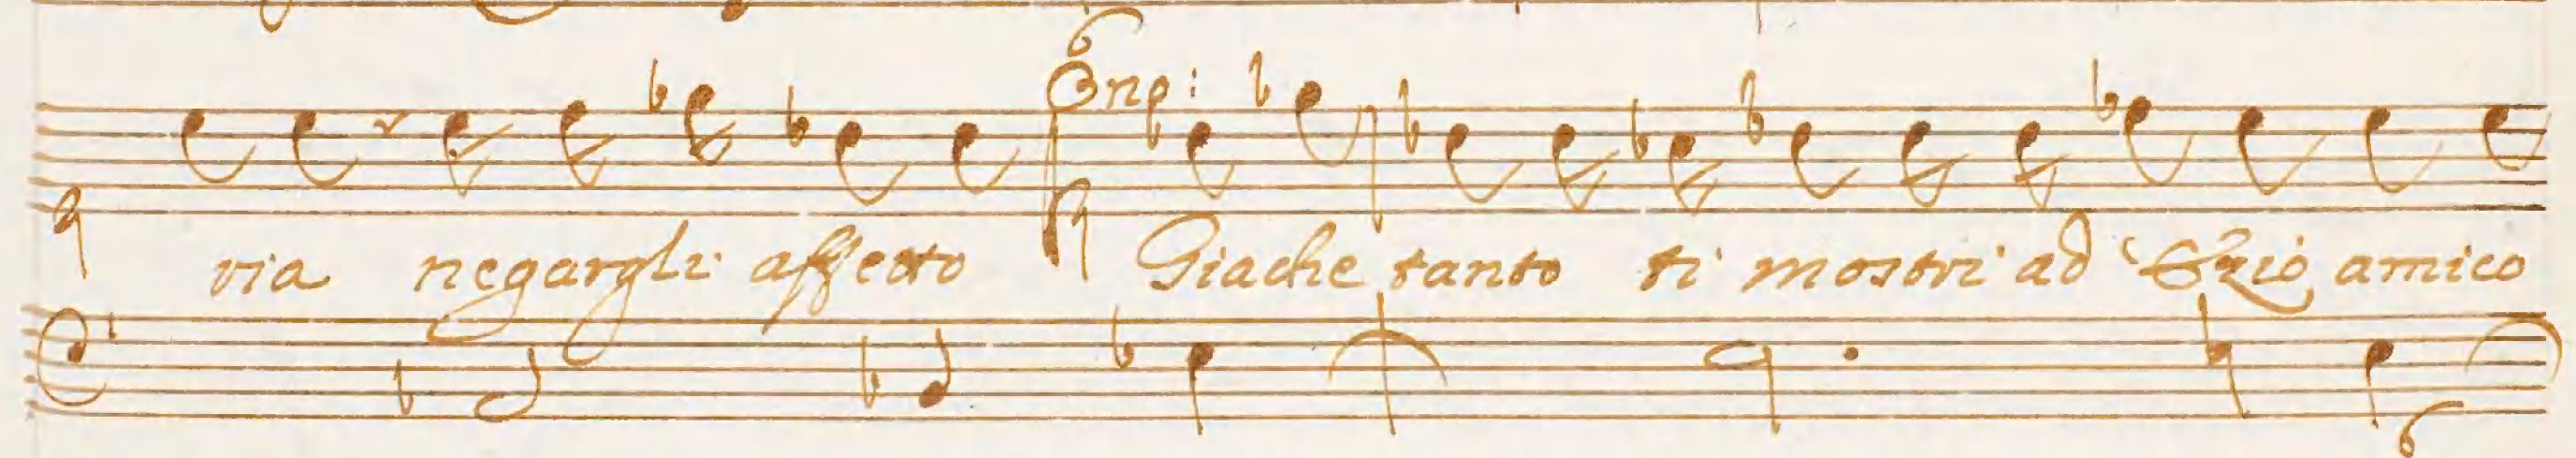 Onp:
via negargli affetto Giache tanto ti mostri ad Ezio amico